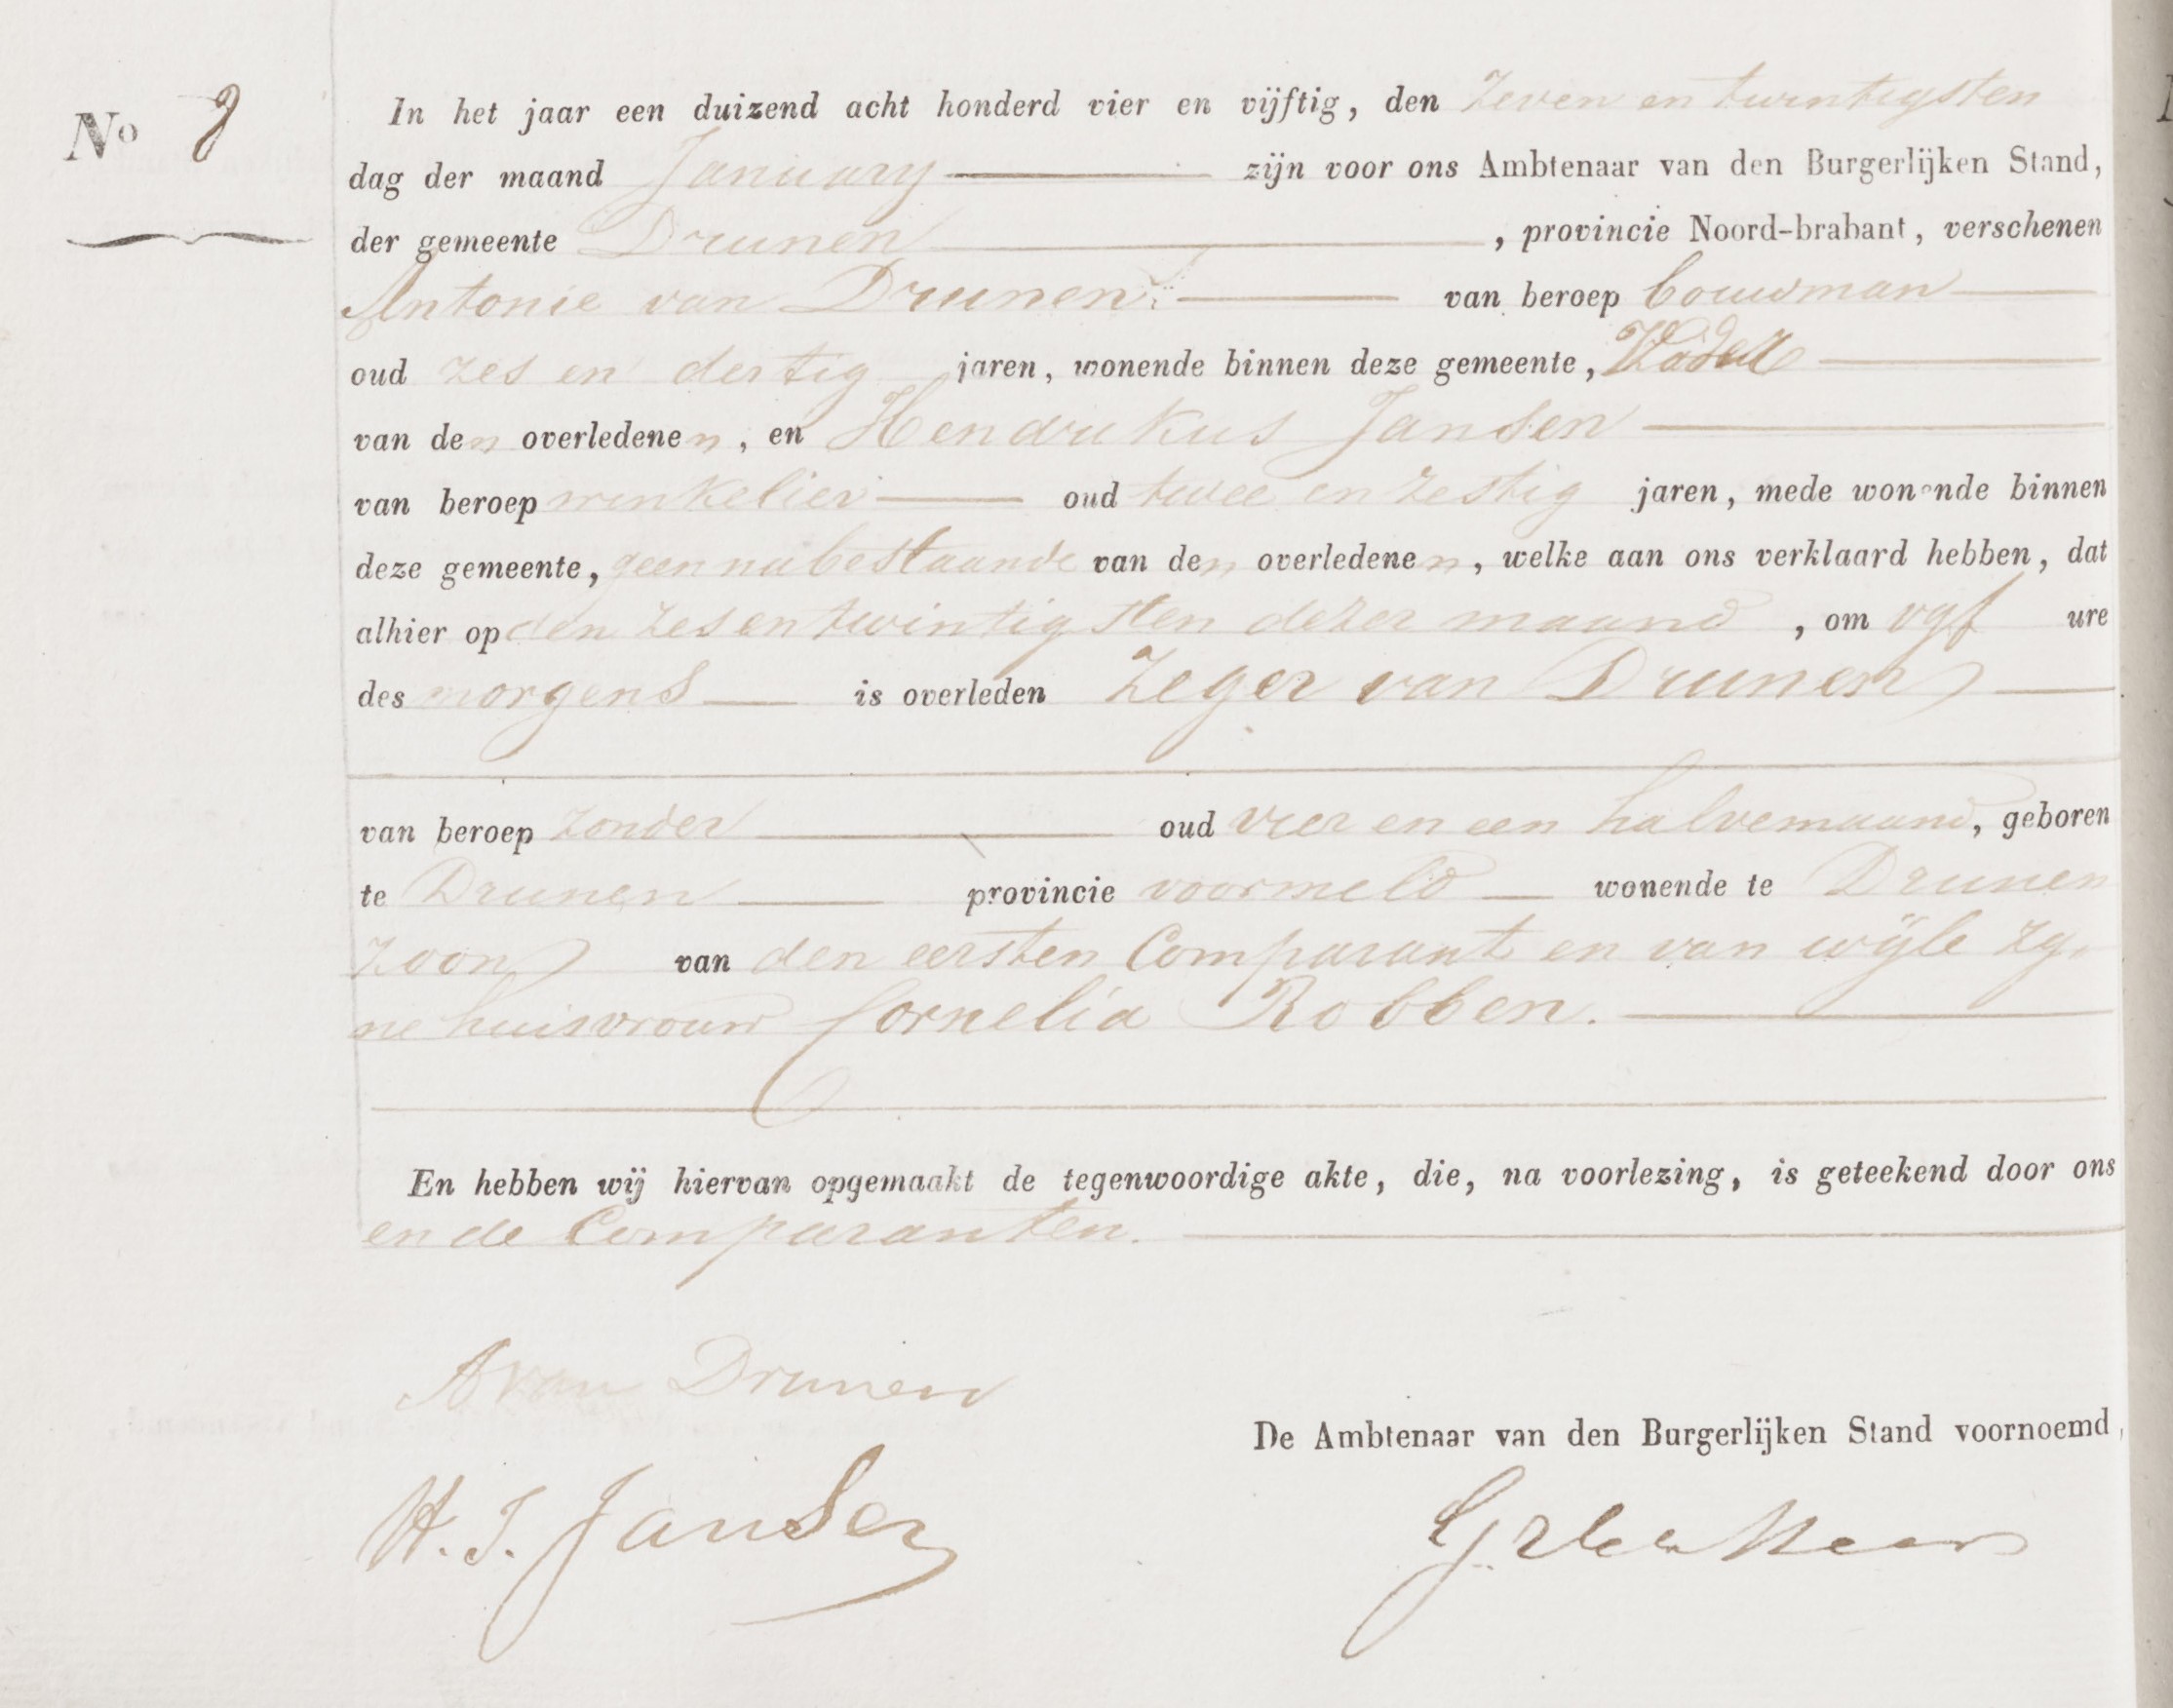 No 8
In het jaar een duizend acht honderd vier en vijftig, den zeven en twintigsten
dag der maand January zijn voor ons Ambtenaar van den Burgerlijken Stand,
der gemeente Drunen, provincie Noord-brabant, verschenen
Antonie van Drunen van beroep bouwman
oud zes en dertig jaren, wonende binnen deze gemeente, Vader
van den overledenen, en Hendrikus Jansen
van beroep winkelier oud twee en zestig jaren, mede wonende binnen
deze gemeente, geen nabestaande van den overledenen, welke aan ons verklaard hebben, dat
alhier op den zes en twintigsten dezer maand, om vyf ure
des morgens is overleden Zeger van Drunen
van beroep zonder oud vier en een halve maand, geboren
te Drunen provincie voormeld wonende te Drunen
zoon van den eersten Comparant en van wijle zy-
ne huisvrouw Cornelia Robben.
En hebben wij hiervan opgemaakt de tegenwoordige akte, die, na voorlezing, is geteekend door ons
en de Comparanten.
A van Drunen
De Ambtenaar van den Burgerlijken Stand voornoemd,
H. J. Jansen